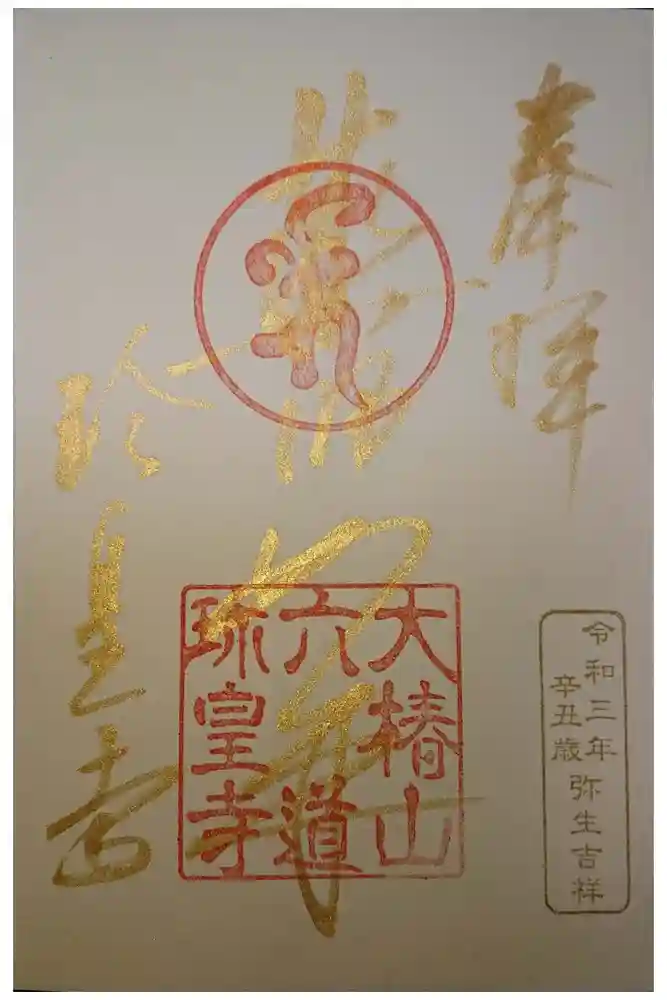 奉拝
令和三年
辛丑歳
弥生吉祥
大椿山
六道
珎皇寺
珍皇寺